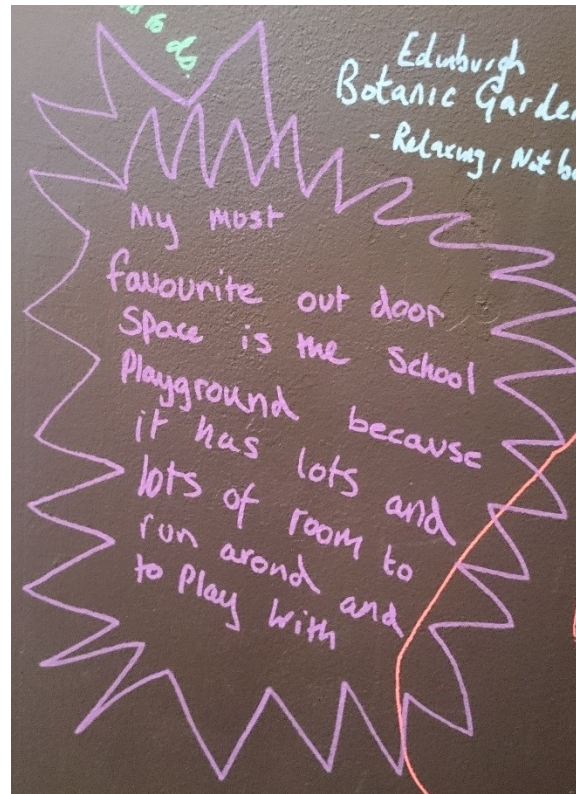 to do.
Edinburgh
Botanic Garden
- Relaxing, Not
My most
favourite out door
space is the school
Playground because
it has lots and
lots of room to
run arond and
to Play with